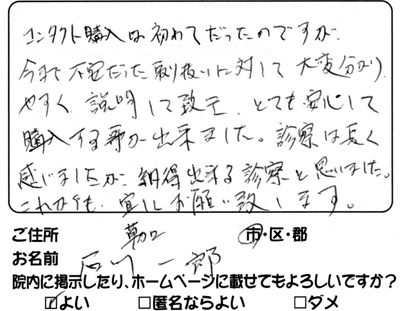 コンタクト購入は初めてだったのですが、
今まで不安だった取り扱いに対して大変分かり
やすく説明して頂き、とても安心して
購入する事が出来ました。診察は長く
感じましたが、納得出来る診察と思いました。
これからも宜しくお願い致します。
ご住所 市・区・郡
お名前 石川一郎
院内に掲示したり、ホームページに載せてもよろしいですか?
☑よい □匿名ならよい □ダメ